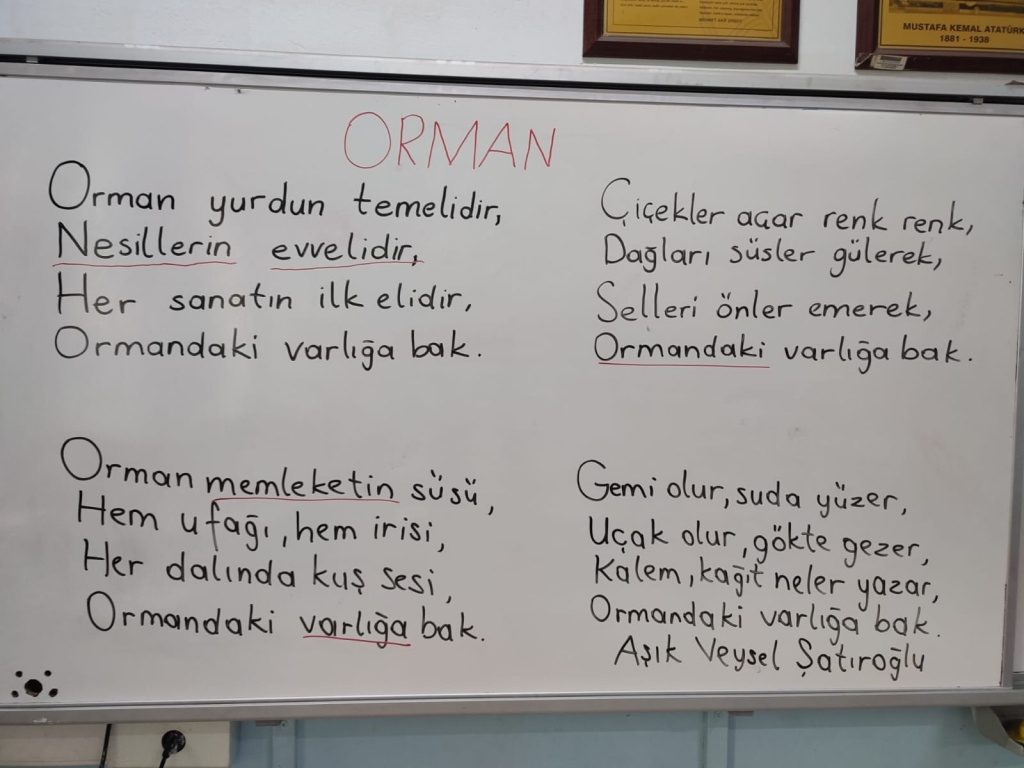 MUSTAFA KEMAL ATATÜRK
1881 - 1938
ORMAN
Orman yurdun temelidir,
Nesillerin evvelidir,
Her sanatın ilk elidir,
Ormandaki varlığa bak.
Orman memleketin süsü,
Hem ufağı, hem irisi,
Her dalında kuş sesi,
Ormandaki varlığa bak.
Çiçekler açar renk renk,
Dağları süsler gülerek,
Selleri önler emerek,
Ormandaki varlığa bak.
Gemi olur, suda yüzer,
Uçak olur, gökte gezer,
Kalem, kağıt neler yazar,
Ormandaki varlığa bak.
Aşık Veysel Şatıroğlu